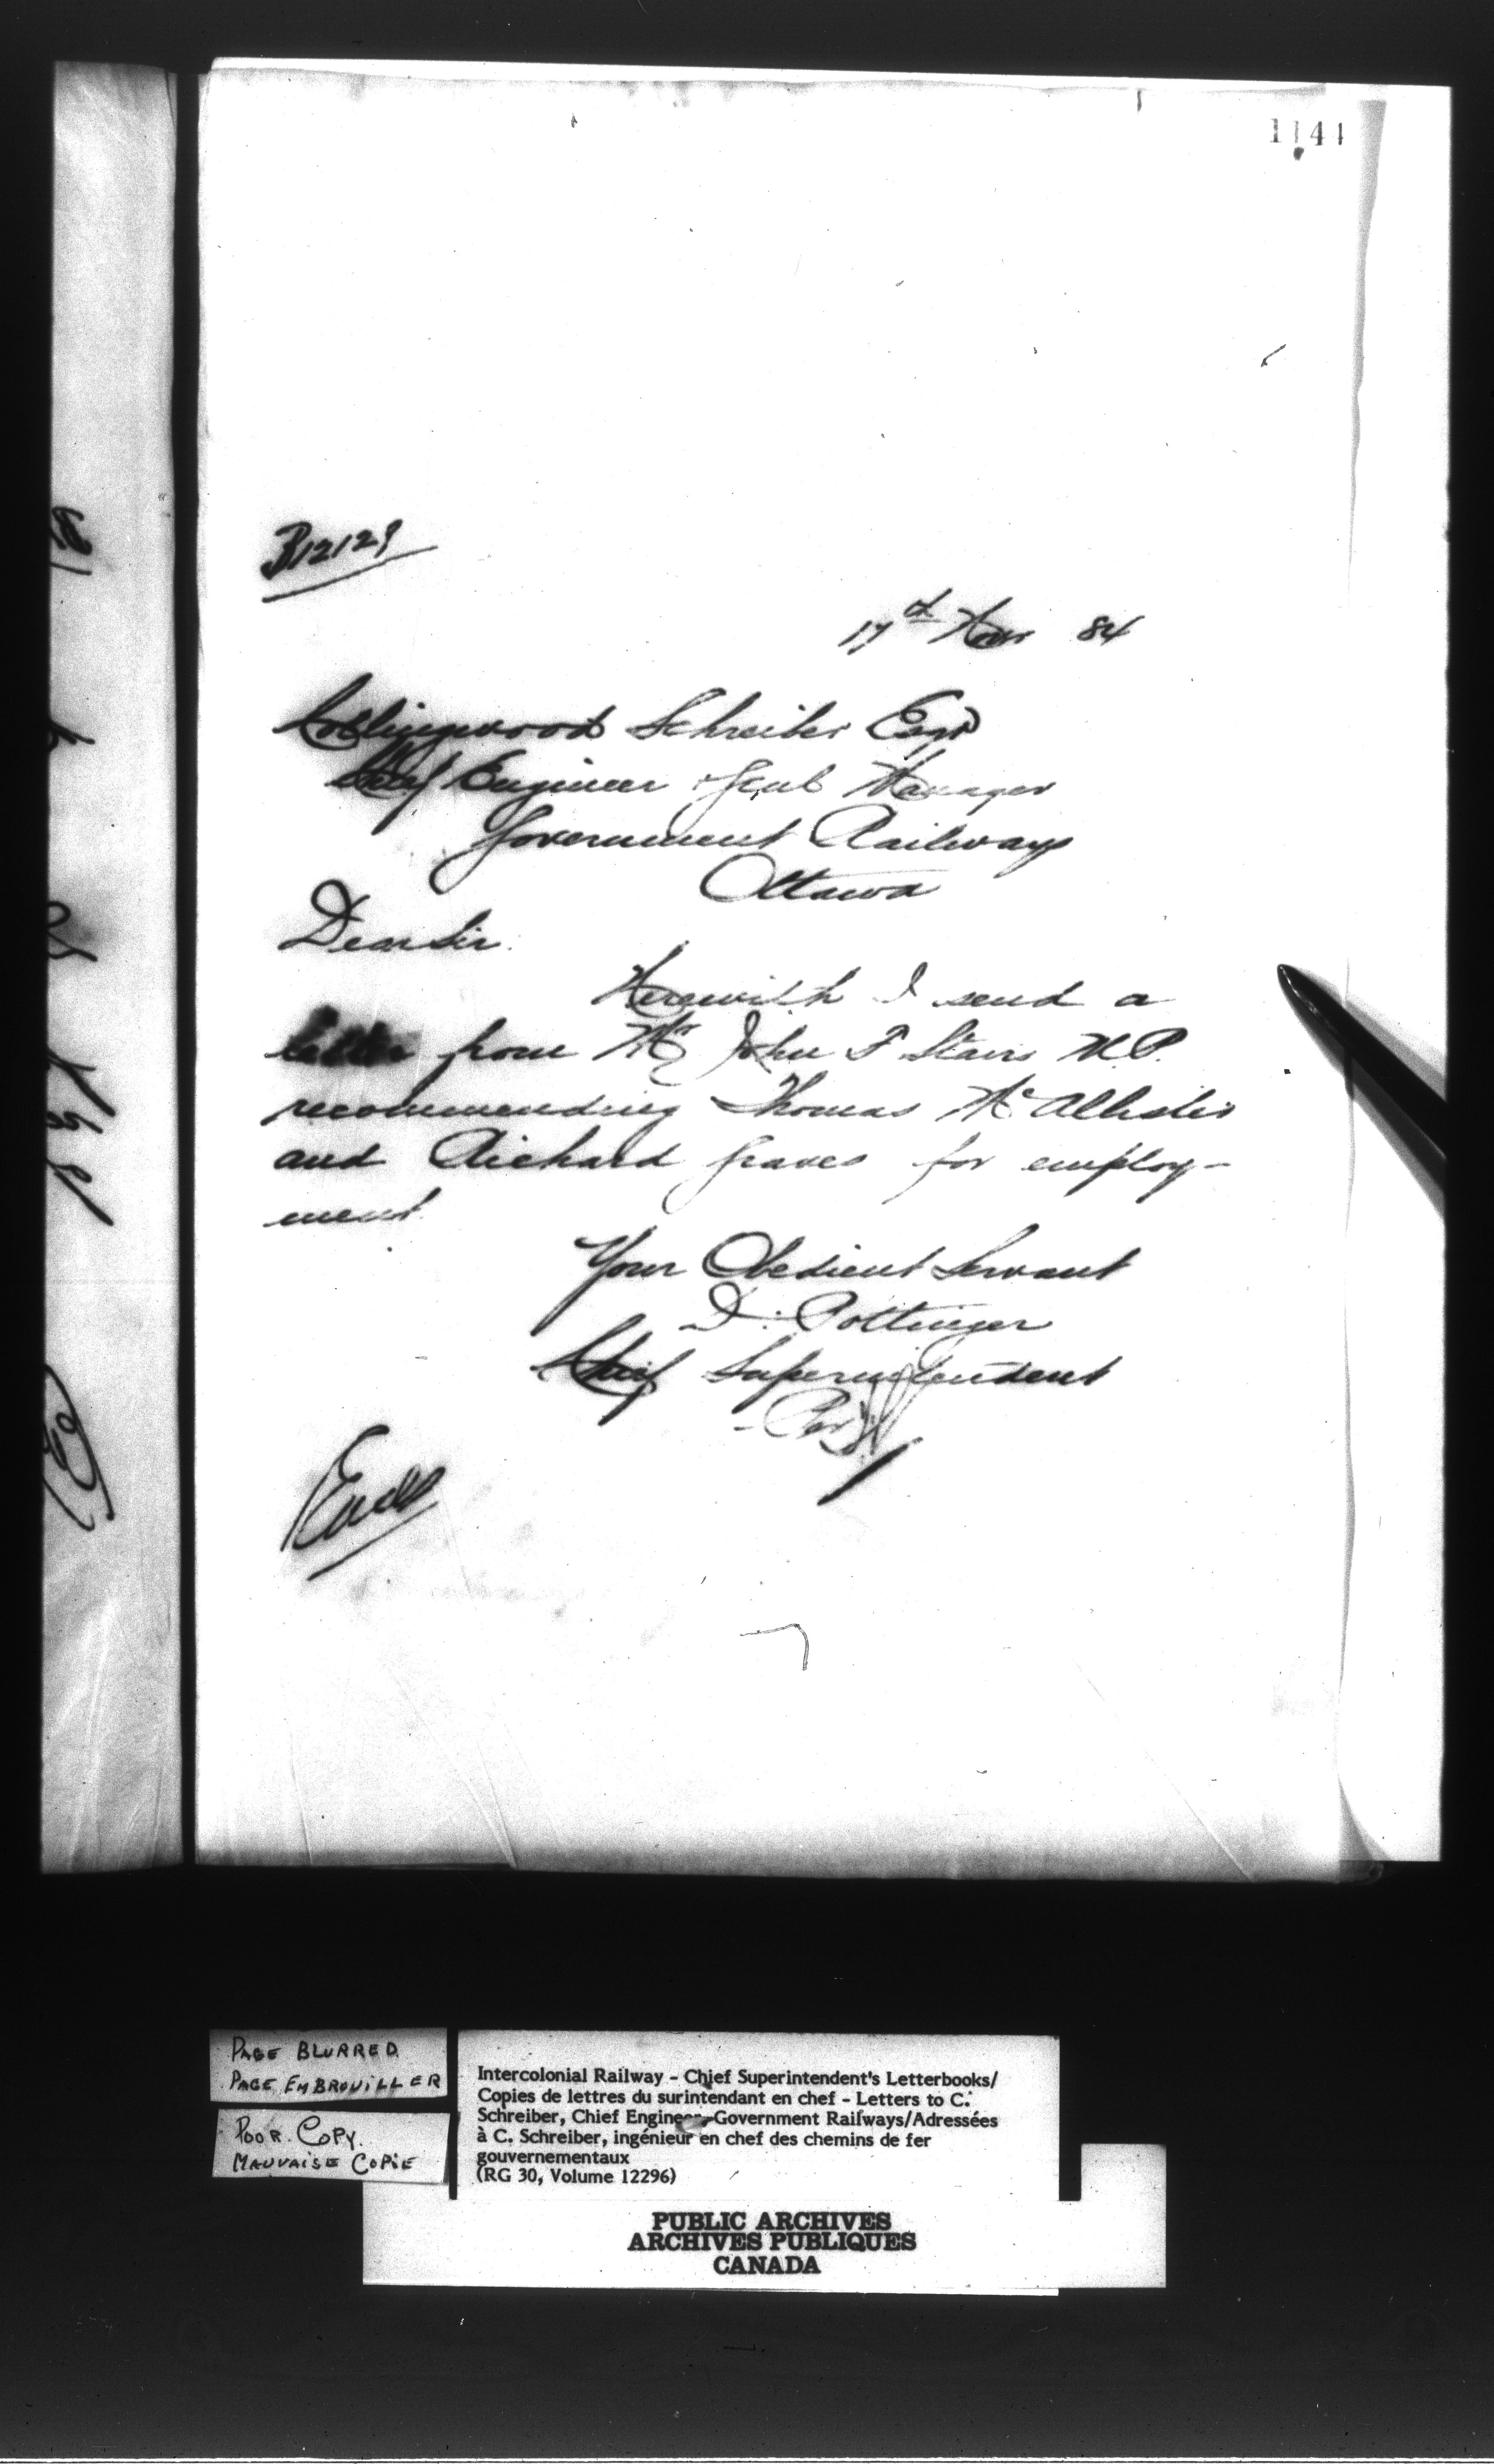 1144
B12129
17th Novr 84
Collingwood Schreiber Esqr
Chief Engineer & Genl Manager
Government Railways
Ottawa
Dear Sir.
Herewith I send a
letter from Mr John F Stairs M.P.
recommending Thomas McAllister
and Richard Graves for employ-
ment.
Your Obedient Servant
D. Pottinger
Chief Superintendent
Per
Encls
PAGE BLURRED.
PAGE EMBROUILLER
POOR COPY.
MAUVAISE COPIE
Intercolonial Railway - Chief Superintendent's Letterbooks/
Copies de lettres du surintendant en chef - Letters to C.
Schreiber, Chief Engineer-Government Railways/Adressées
à C. Schreiber, ingénieur en chef des chemins de fer
gouvernementaux
(RG 30, Volume 12296)
PUBLIC ARCHIVES
ARCHIVES PUBLIQUES
CANADA